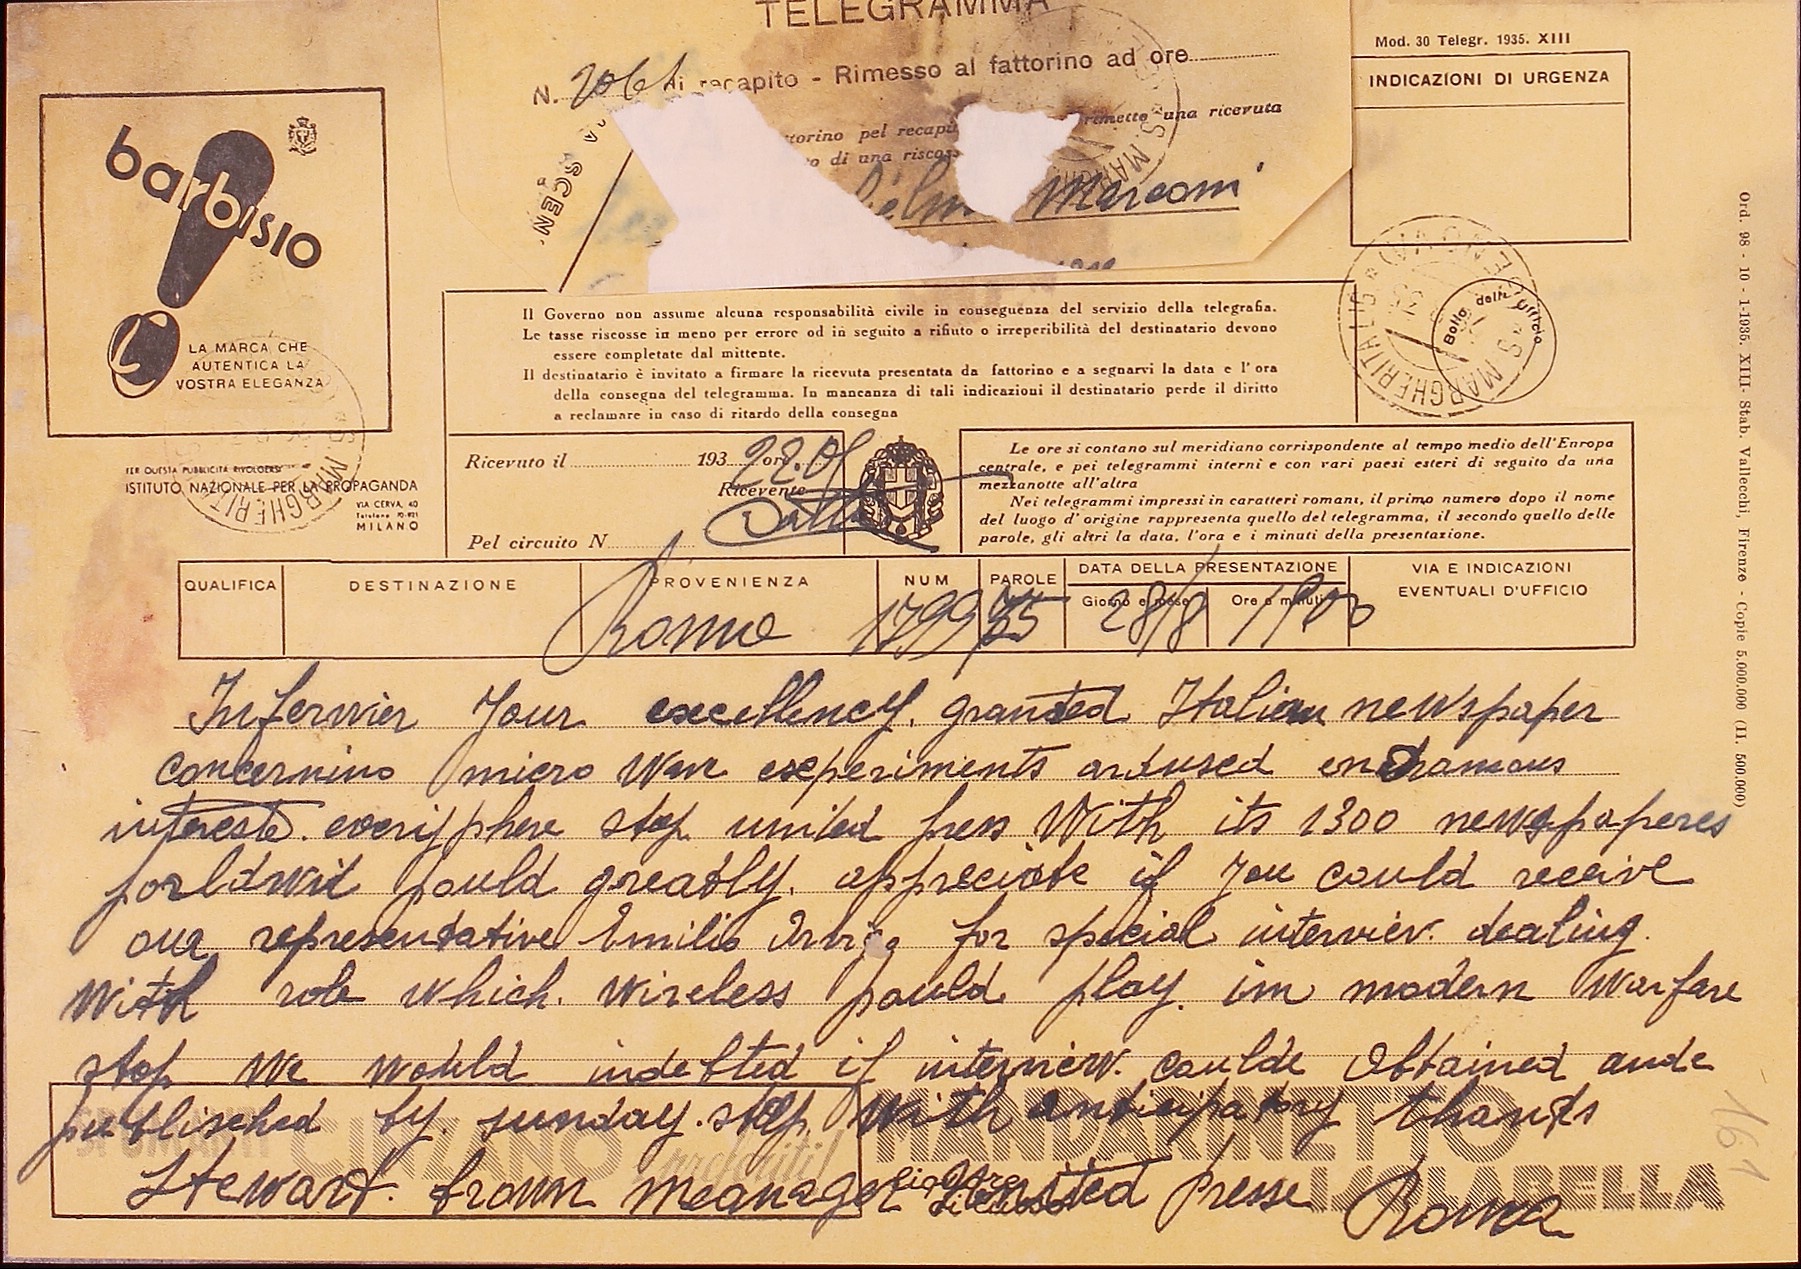 TELEGRAMMA
N. 2061 di recapito - Rimesso al fattorino ad ore
rimette una ricevuta
fattorino pel recapi
o di una riscos
Marconi
Mod. 30 Telegr. 1935. XIII
INDICAZIONI DI URGENZA
barbisio
LA MARCA CHE
AUTENTICA LA
VOSTRA ELEGANZA
PER QUESTA PUBBLICITÀ RIVOLGERSI
ISTITUTO NAZIONALE PER LA PROPAGANDA
VIA CERVA, 40
MILANO
S. MARGHERITA
Il Governo non assume alcuna responsabilità civile in conseguenza del servizio della telegrafia.
Le tasse riscosse in meno per errore od in seguito a rifiuto o irreperibilità del destinatario devono
essere completate dal mittente.
Il destinatario è invitato a firmare la ricevuta presentata da fattorino e a segnarvi la data e l'ora
della consegna del telegramma. In mancanza di tali indicazioni il destinatario perde il diritto
a reclamare in caso di ritardo della consegna
S. MARGHERITA LIG. (GENOVA)
Bollo dell'ufficio
Ricevuto il 193 ore 22.05
Ricevente
Pel circuito N.
Le ore si contano sul meridiano corrispondente al tempo medio dell'Europa
centrale, e pei telegrammi interni e con vari paesi esteri di seguito da una
mezzanotte all'altra
Nei telegrammi impressi in caratteri romani, il primo numero dopo il nome
del luogo d'origine rappresenta quello del telegramma, il secondo quello delle
parole, gli altri la data, l'ora e i minuti della presentazione.
QUALIFICA DESTINAZIONE PROVENIENZA NUM PAROLE DATA DELLA PRESENTAZIONE VIA E INDICAZIONI EVENTUALI D'UFFICIO
Giorno e mese Ore e minuti
Roma 1799 75 28/8 1900
Interwier Your excellency granted Italian newspaper
concernino micro wave experiments aroused enoramous
intereste everyphere stop united press With its 1300 newspaperes
porldwit pould greatly appreciate if You could receive
our representative Emilio for special interview dealing
With role which wireless pould play in modern Warfare
stop We would indebted if interview coulde obtained ande
publisched by sunday stop With anticipatory thanks
Steward brown meanager united Presse Roma
SPUMANTI CINZANO preferiti!
MANDARINETTO
ISOLABELLA
161
Ord. 98 - 10 - 1-1935. XIII- Stab. Vallecchi, Firenze - Copie 5.000.000 (II. 500.000)